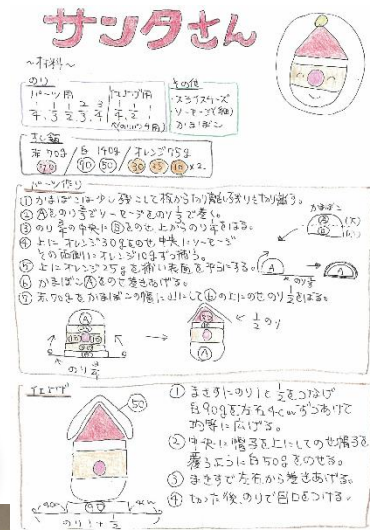 サンタさん
~材料~
のり
パーツ用
仕上げ用
その他
・スライスチーズ
・ソーセージ(細)
・かまぼこ
すし飯
赤70g / 白140g / オレンジ75g
70
90 50
30 25 10 ×2
パーツ作り
① かまぼこは少し残こして板から切り離し残りも切り離す。
② Ⓐをのり
でソーセージをのり1/3で巻く。
③ のり3/4の中央にⒷをのせ上からのり1/4をはる。
④ 上にオレンジ30gをのせ中央にソーセージ
その両側にオレンジ10gずつ補う。
⑤ 上にオレンジ25gを補い表面を平らにする。
⑥ かまぼこⒶをのせ巻きあげる。
⑦ 赤70gをかまぼこの幅に山にしてⒷの上にのせのり1/2をはる。
かまぼこ
Ⓐ (大)
Ⓑ (小)
Ⓐ
のり
Ⓐ
のり 3/4
1/2のり
Ⓐ
仕上げ
50
4cm
4cm
のり1+1/2
① まきすにのり1と1/2をつなげ
白90gを左右4cmずつあけて
均等に広げる。
② 中央に帽子を上にしてのせ帽子を
覆うように白50gをのせる。
③ まきすで左右から巻きあげる。
④ 切った後、のりで目口をつける。